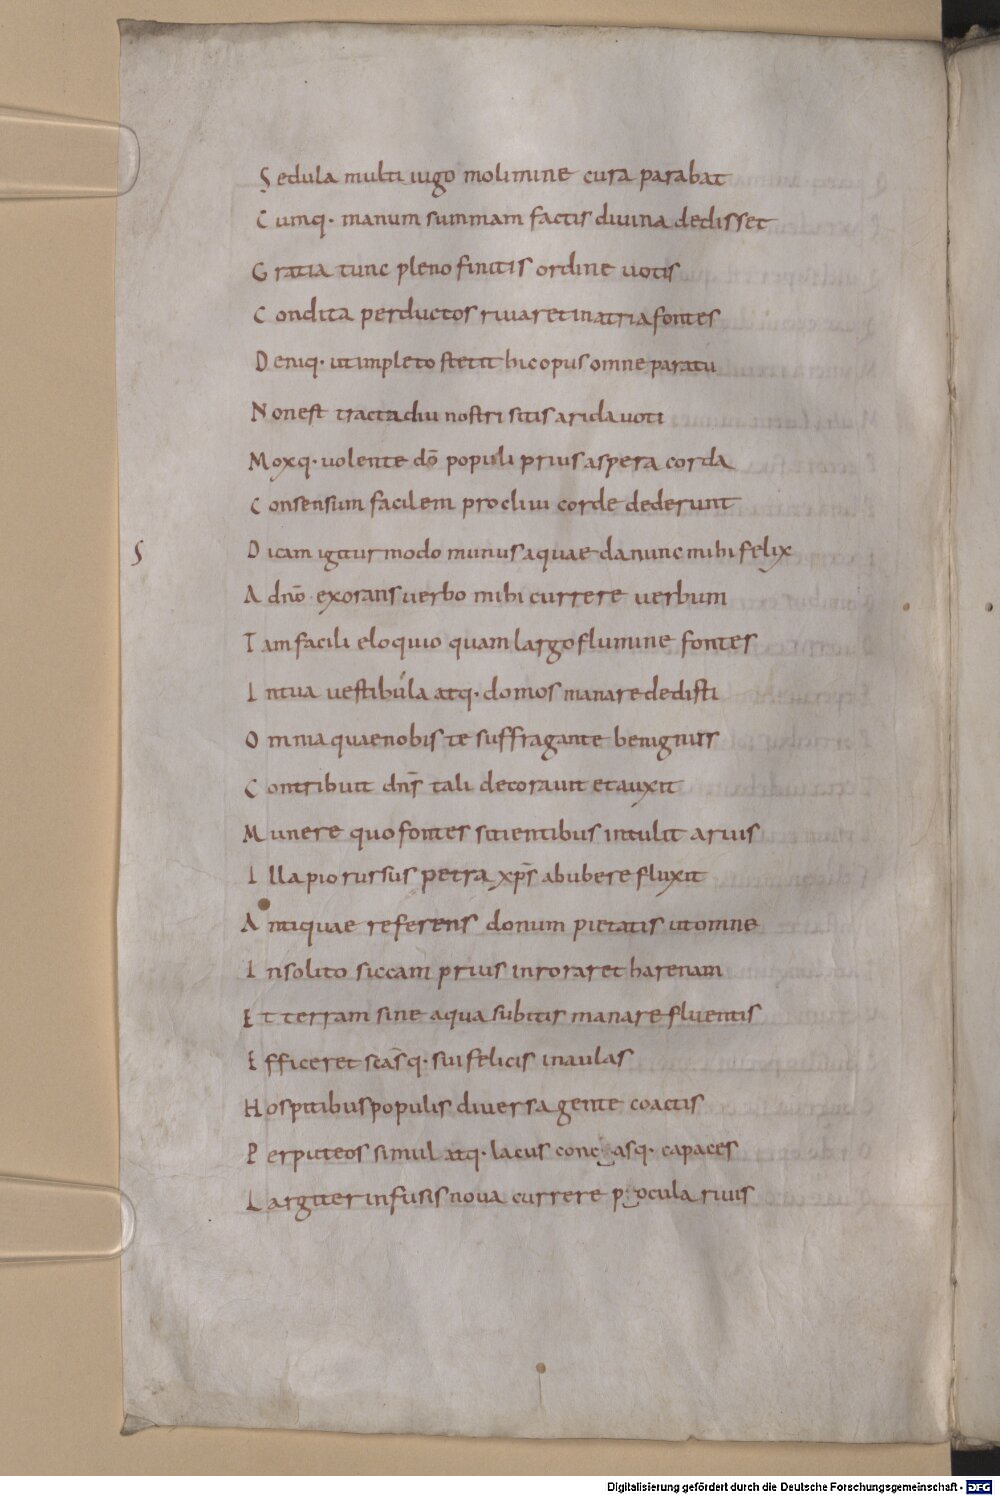 Sedula multi iugo molimine cura parabat
Cumq· manum summam factis diuina dedisset
Gratia tunc pleno finitis ordine uotis
Condita perductos riuaret in atria fontes
Deniq· ut impleto stetit hic opus omne paratu
Non est tracta diu nostri sitis arida uoti
Moxq· uolente dō populi prius aspera corda
Consensum facilem procliui corde dederunt
S Dicam igitur modo munus aquae da nunc mihi felix
A dnō exorans uerbo mihi currere uerbum
Tam facili eloquio quam largo flumine fontes
In tua uestibula atq· domos manare dedisti
Omnia quae nobis te suffragante benignus
Contribuit dns̄ tali decorauit et auxit
Munere quo fontes sitientibus intulit aruis
Illa pio rursus petra xps̄ ab ubere fluxit
Antiquae referens donum pietatis ut omne
Insolito siccam prius inroraret harenam
Et terram sine aqua subitis manare fluentis
Efficeret scāsq· sui felicis in aulas
Hospitibus populis diuersa gente coactis
Per puteos simul atq· lacus concasq· capaces
Largiter infusis noua currere pocula riuis
Digitalisierung gefördert durch die Deutsche Forschungsgemeinschaft - DFG